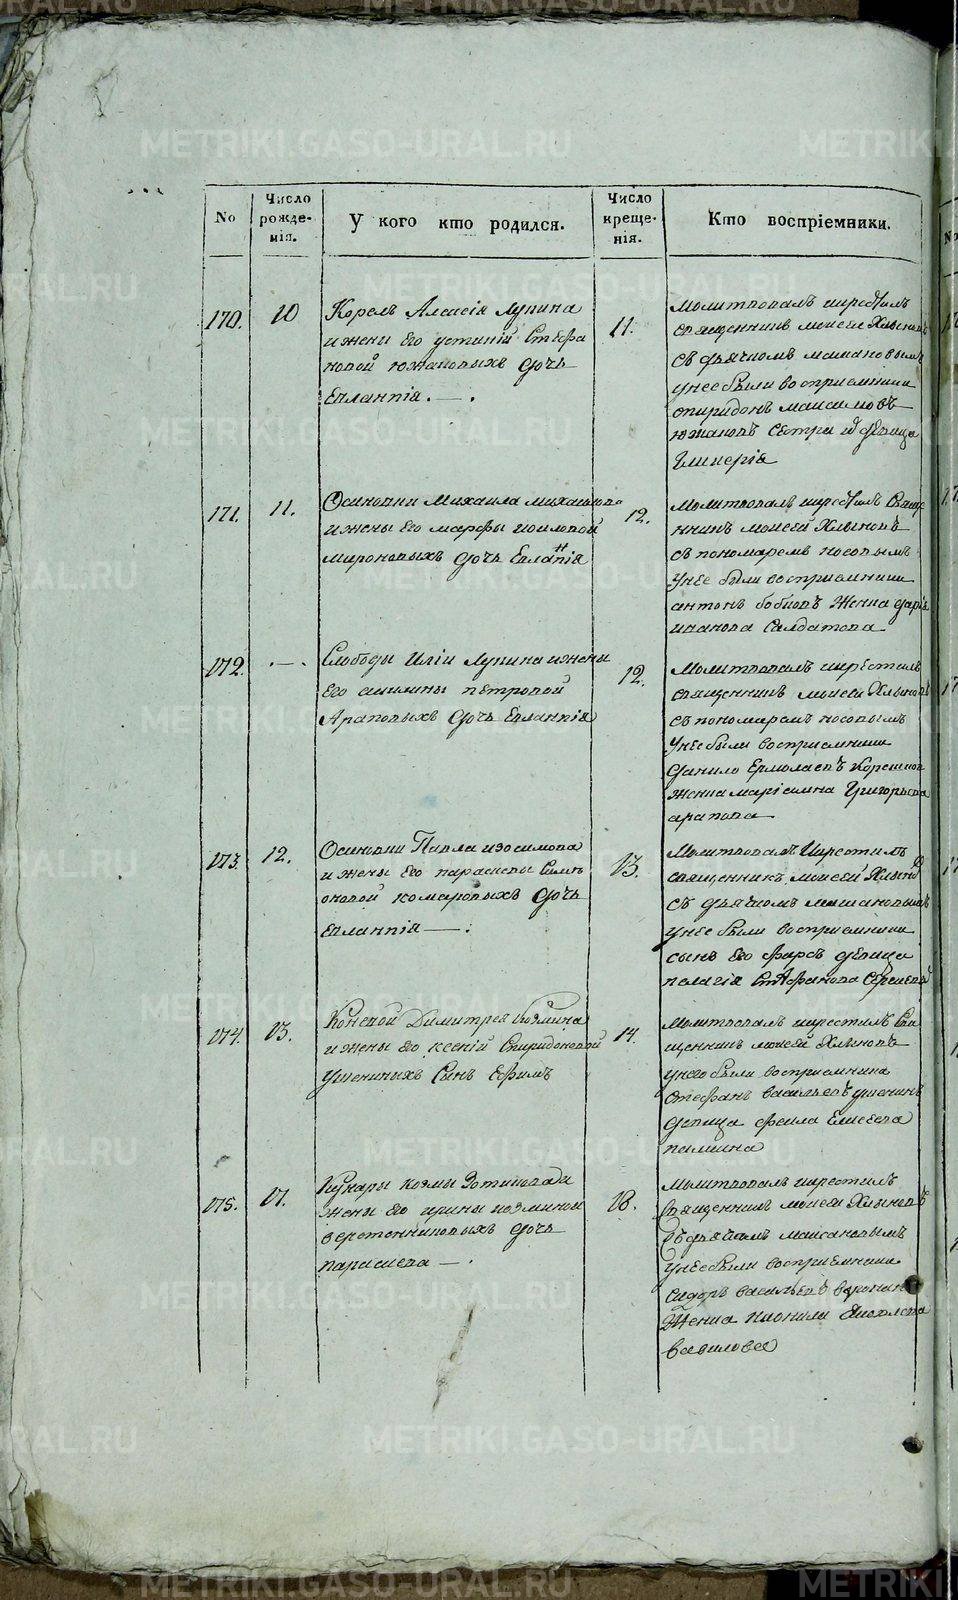 METRIKI.GASO-URAL.RU
No
Число рожде-нія.
У кого кто родился.
Число креще-нія.
Кто воспріемники.
170.
10
Корелъ Алексія Лупина
и жены Его устиніи Стефа
новой южаковыхъ дочь
Евланпія.
11.
Молитвовалъ икрестилъ
священникъ моисей Хлыновъ
съ дьячкомъ
унее были восприемники
спиридонъ максимовъ
южаковъ Сестра девица
Гликерія
171.
11.
Осиновки Михаила михаилова
и жены Его марфы
мироновыхъ дочь Евланпія
12.
Молитвовалъ икрестилъ Свяще
нникъ моисей Хлыновъ
съ пономаремъ носовымъ
унее были восприемники
антонъ бобковъ Женка дарья
иванова Салдатова
172.
Слободы Иліи Лупина и жены
Его акилины петровой
Араповыхъ дочь Евланпія
12.
Молитвовалъ икрестилъ
священникъ моисей Хлыновъ
съ пономаремъ носовымъ
Унее были восприемники
данило Ермолаевъ
женка маріамна Григорьева
арапова
173.
12.
Осиновки Павла изосимова
и жены Его параскевы Симе
оновой комаровыхъ дочь
Евланпія
13.
Молитвовалъ Икрестилъ
священникъ моисей Хлынов
съ дьячкомъ
унее были восприемники
сынъ Его девица
пелагія Стефанова
174.
13.
Коневой Димитрея Козмина
и жены Его ксеніи Спиридоновой
Ушениныхъ Сынъ Ефимъ
14.
Молитвовалъ икрестилъ Свя
щенникъ моисей Хлыновъ
унего были восприемника
Стефанъ васильевъ ушенинъ
девица фекла Елисеева
палкина
175.
17.
Кунары козмы Зотикова и
жены Его ирины козминой
веретенниковыхъ дочь
параскева
18.
Молитвовалъ икрестилъ
Священникъ моисей Хлыновъ
Съ дьячкомъ
унее были восприемники
Сидоръ васильевъ
Женка Яковлева
вавилова